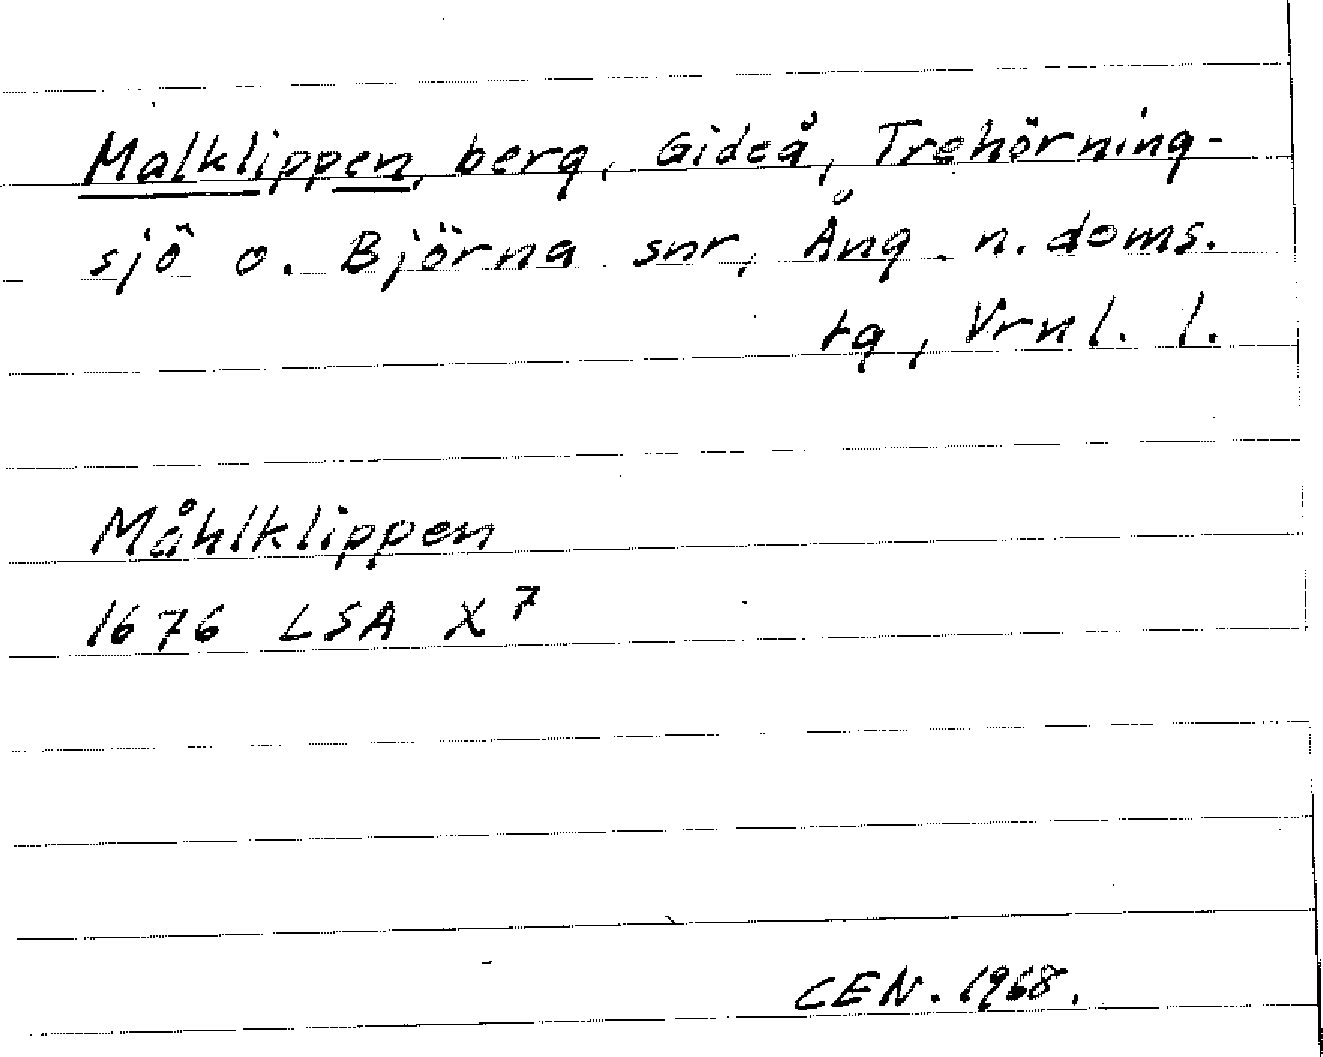 Malklippen, berg, Gideå, Trehörning-
sjö o. Björna snr, Ång. n. doms.
tg, Vrnl. l.
Måhlklippen
1676 LSA X7
CEN. 1968.